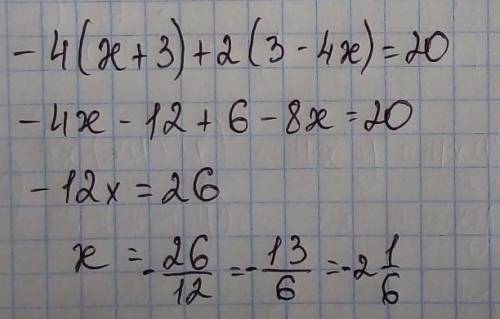 -4(x+3)+2(3-4x)=20
-4x-12+6-8x=20
-12x=26
x=-26/12=-13/6=-2 1/6